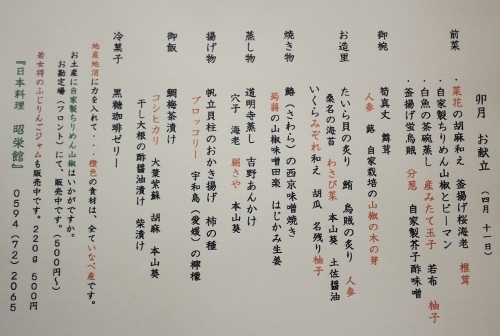 卯月 お献立 （四月 十一日）
前菜 ・菜花の胡麻和え 釜揚げ桜海老 椎茸
・自家製ちりめん山椒とピーマン
・白魚の茶碗蒸し 産みたて玉子 若布 柚子
・釜揚げ蛍烏賊 分葱 自家製芥子酢味噌
御椀 筍真丈 舞茸
人参 蕗 自家栽培の山椒の木の芽
お造里 たいら貝の炙り 鮪 烏賊の炙り 人参
桑名の海苔 わさび菜 本山葵 土佐醤油
いくらみぞれ和え 胡瓜 名残り柚子
焼き物 鰆（さわら）の西京味噌焼き
蒟蒻の山椒味噌田楽 はじかみ生姜
蒸し物 道明寺蒸し 吉野あんかけ
穴子 海老 絹さや 本山葵
揚げ物 帆立貝柱のおかき揚げ 柿の種
ブロッコリー 宇和島（愛媛）の檸檬
御飯 鯛梅茶漬け
コシヒカリ 大葉紫蘇 胡麻 本山葵
干し大根の酢醤油漬け 柴漬け
冷菓子 黒糖珈琲ゼリー
地産地消に力を入れて・・・橙色の食材は、全ていなべ産です。
お土産に自家製ちりめん山椒はいかがですか。
お勘定場（フロント）にて、販売中です。（５００円～）
若女将のふじりんごジャムも販売中です。２２０ｇ ５００円
『日本料理 昭栄館』 ０５９４（７２）２０６５